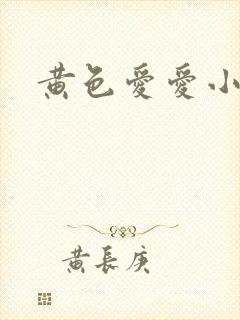 黄色愛愛小
黄長庚